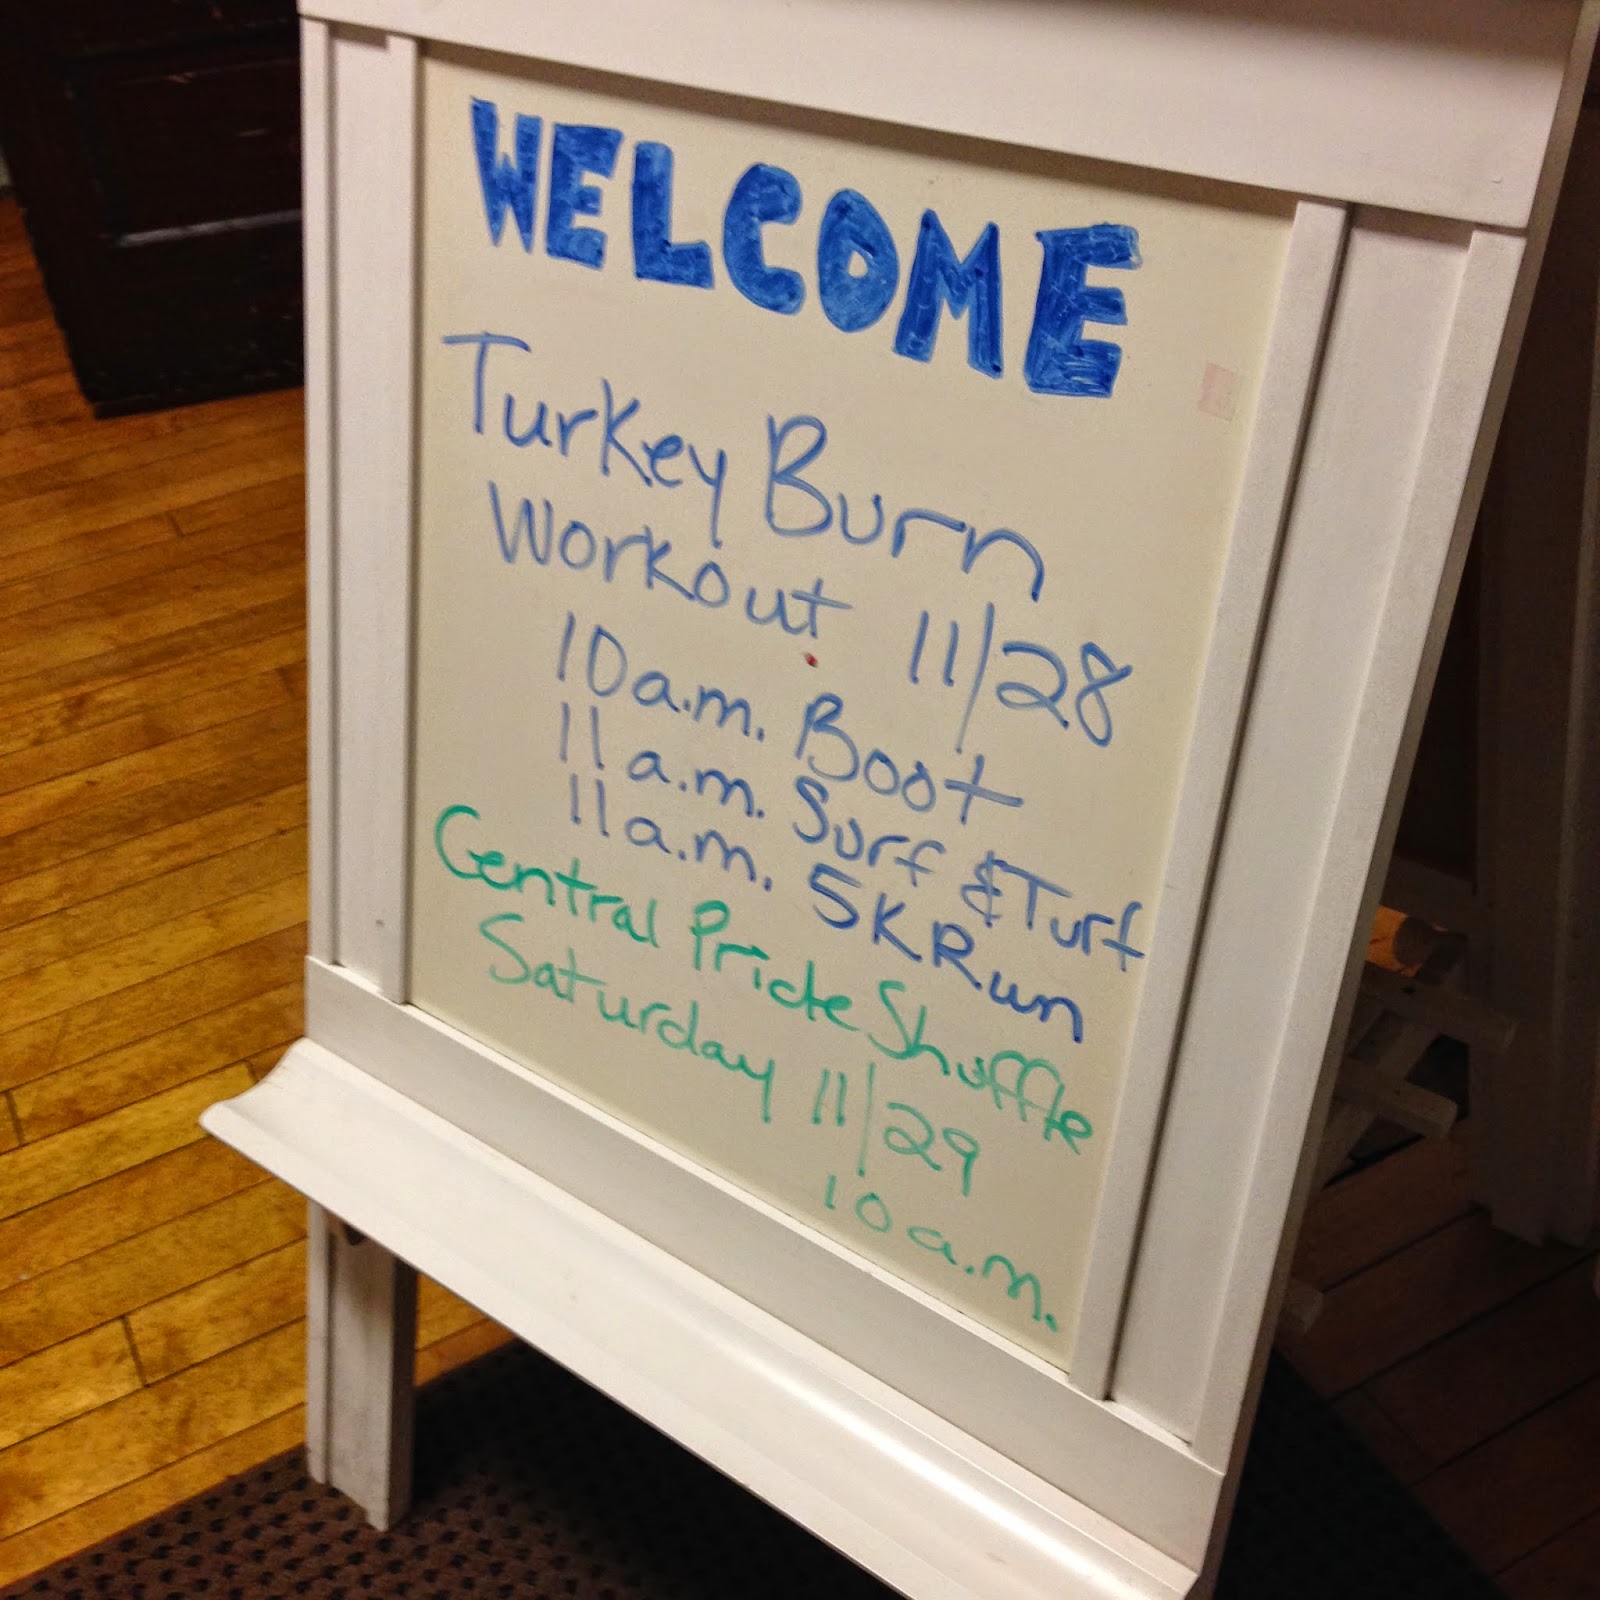 WELCOME
Turkey Burn
Workout 11/28
10a.m. Boot
11a.m. Surf & Turf
11a.m. 5K Run
Central Pride Shuffle
Saturday 11/29
10a.m.